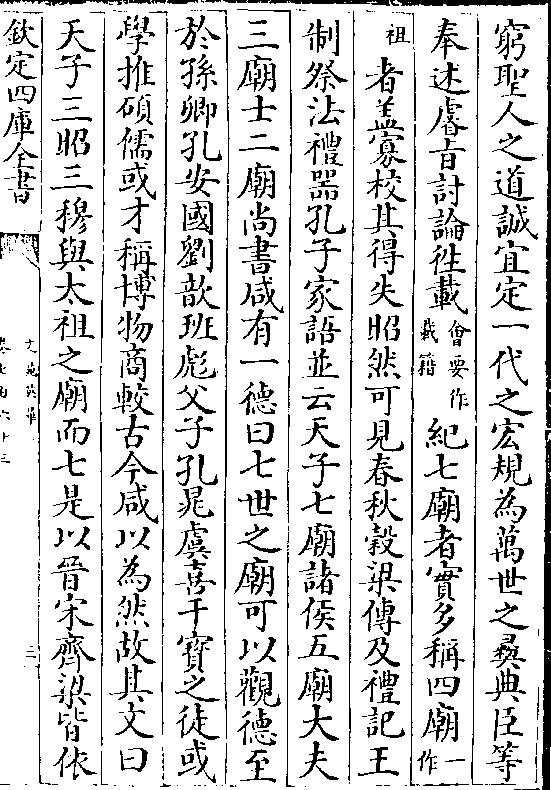 窮聖人之道誠宜定一代之宏規為萬世之彞典臣等
奉述睿旨討論徃載會要作載籍紀七廟者實多稱四廟一作
祖者盖寡校其得失昭然可見春秋穀梁傳及禮記王
制祭法禮器孔子家語並云天子七廟諸侯五廟大夫
三廟士二廟尚書咸有一德曰七世之廟可以觀德至
於孫卿孔安國劉歆班彪父子孔晁虞喜干寳之徒或
學推碩儒或才稱博物商較古今咸以為然故其文曰
天子三昭三穆與太祖之廟而七是以晉宋齊梁皆依
欽定四庫全書
文苑英華
三